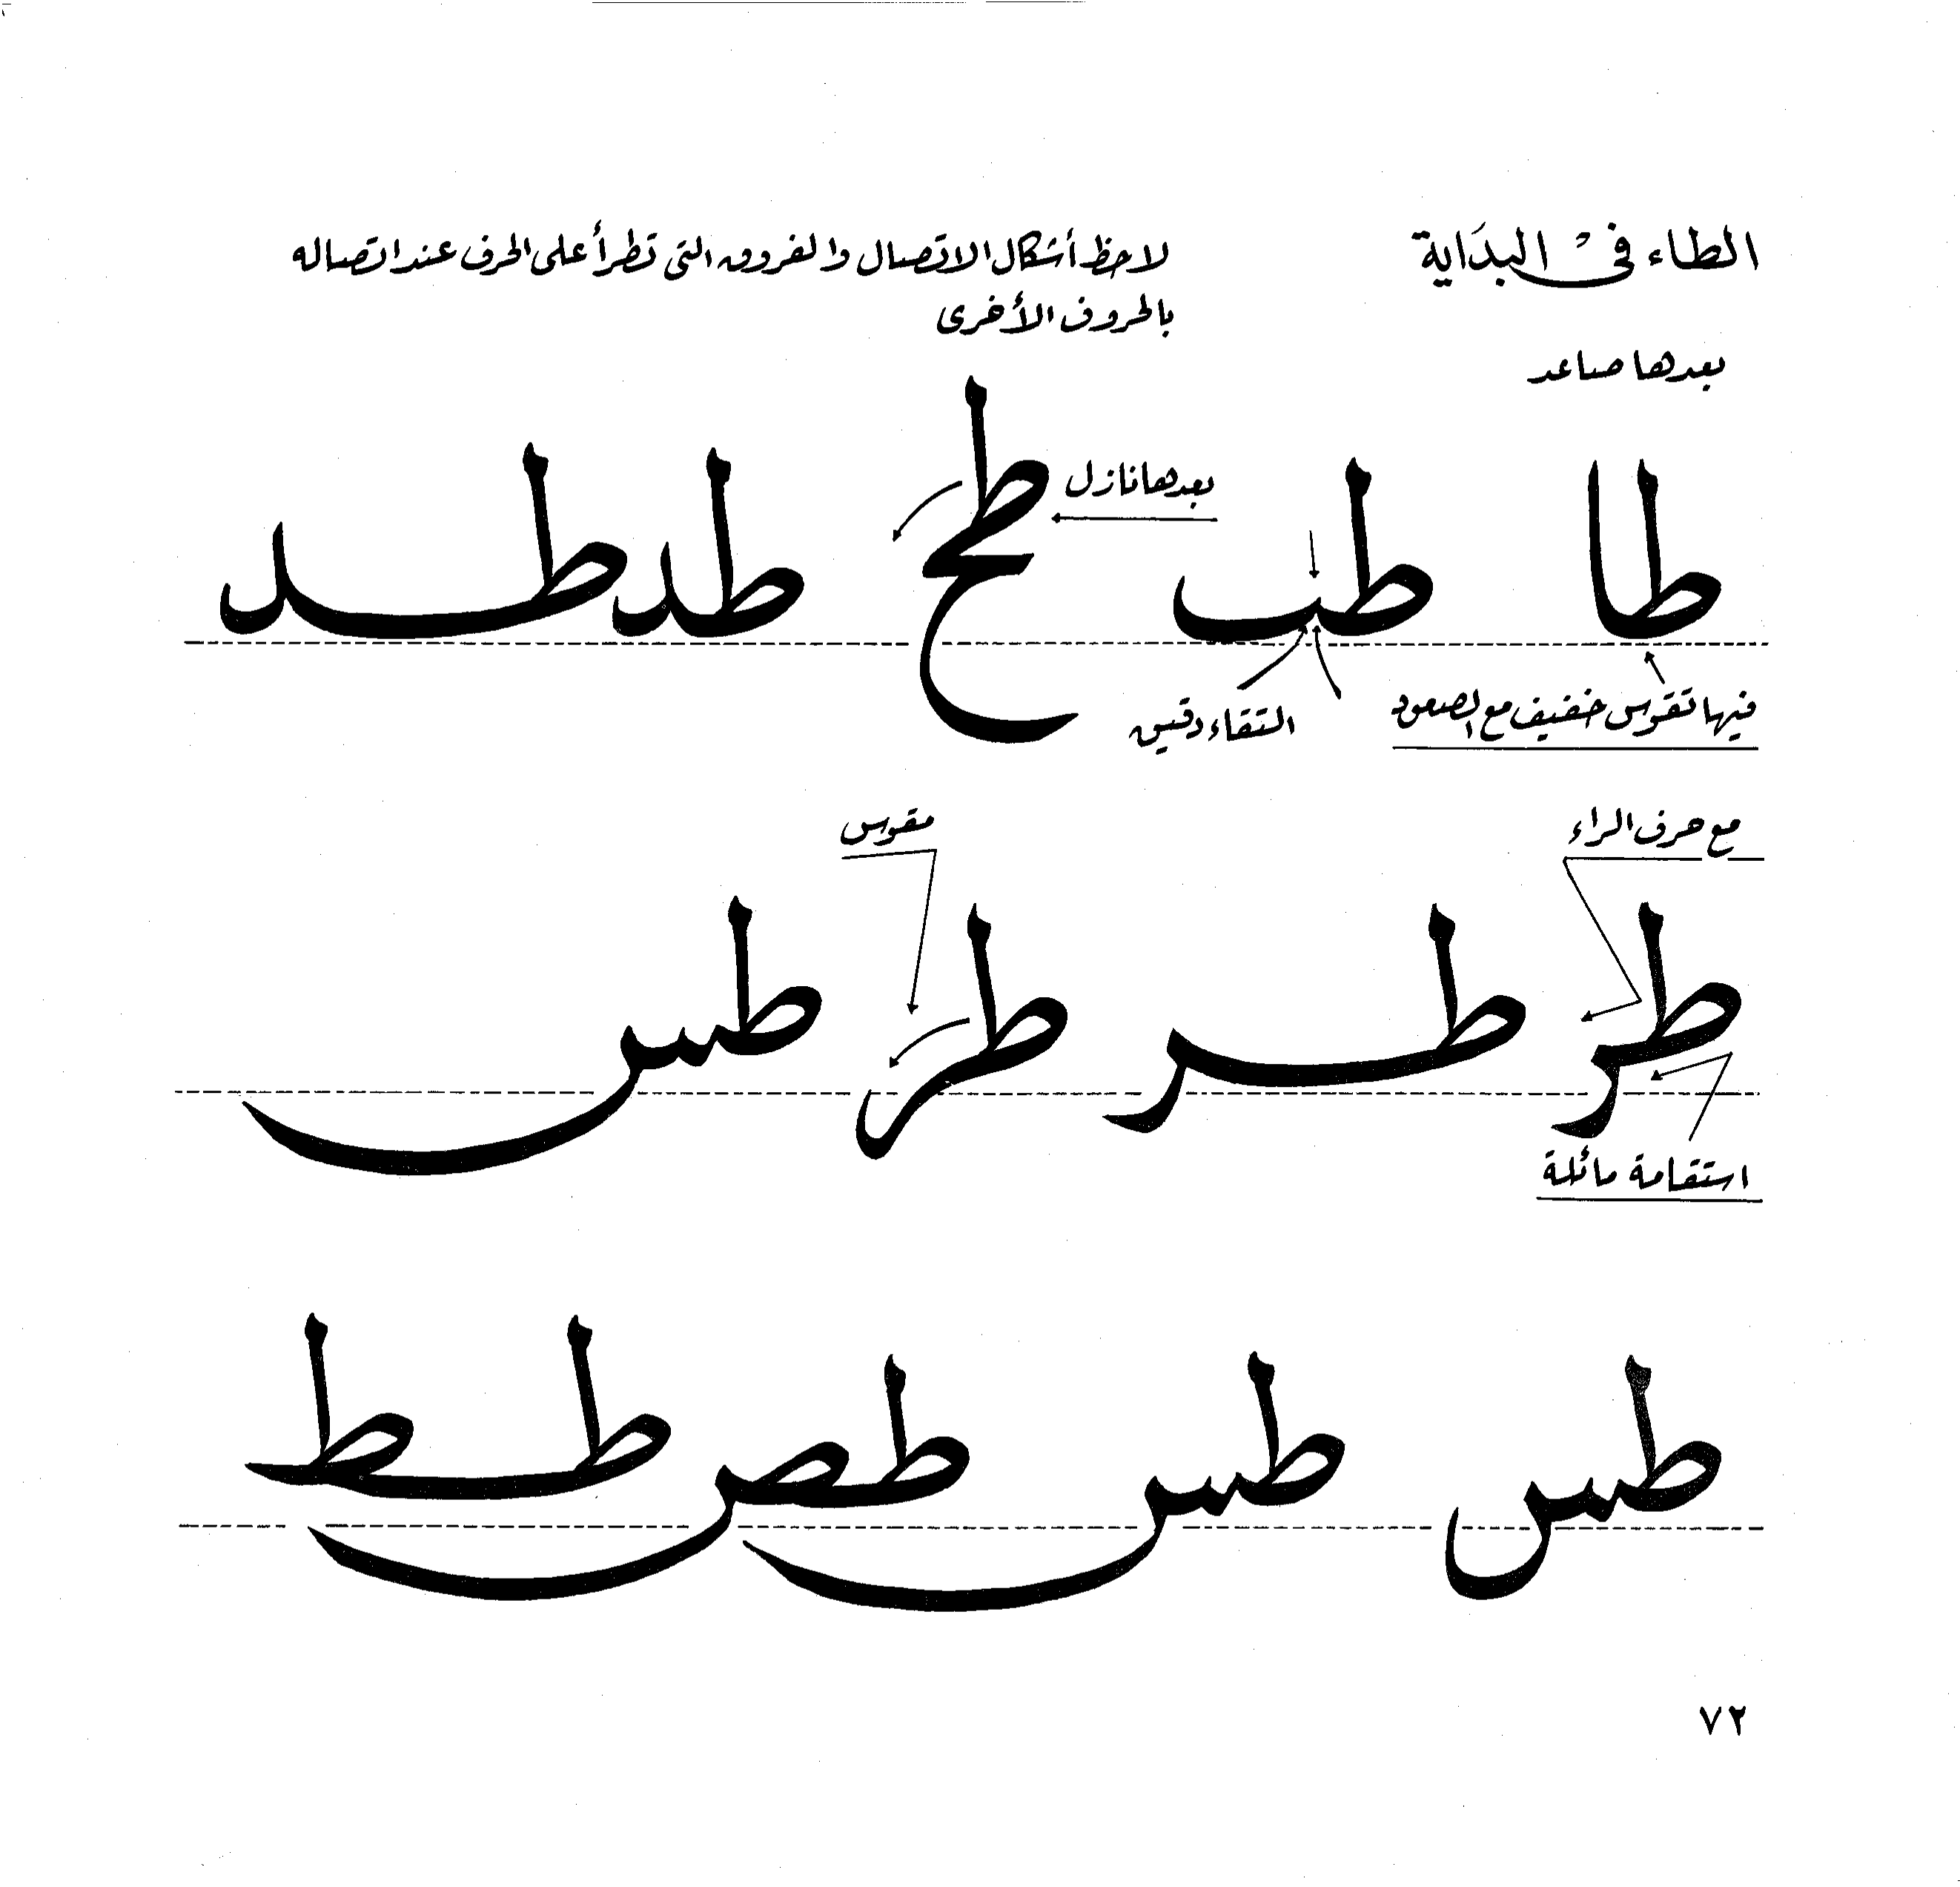 الطاء في البداية
لاحظ أشكال الاتصال والفروق التي تطرأ على الحرف عند اتصاله
بالحروف الأخرى
بعدها صاعد
بعدها نازل
طا طب طح طد طد
فيها تقوس خفيف مع الصعود
التقاء دقيق
مع حرف الراء
مقوس
طر طر طر طس
استقامة مائلة
طس طس طص طط
٧٢